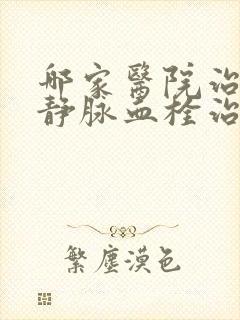 哪家醫院治
静脉血栓治
繁塵漠色